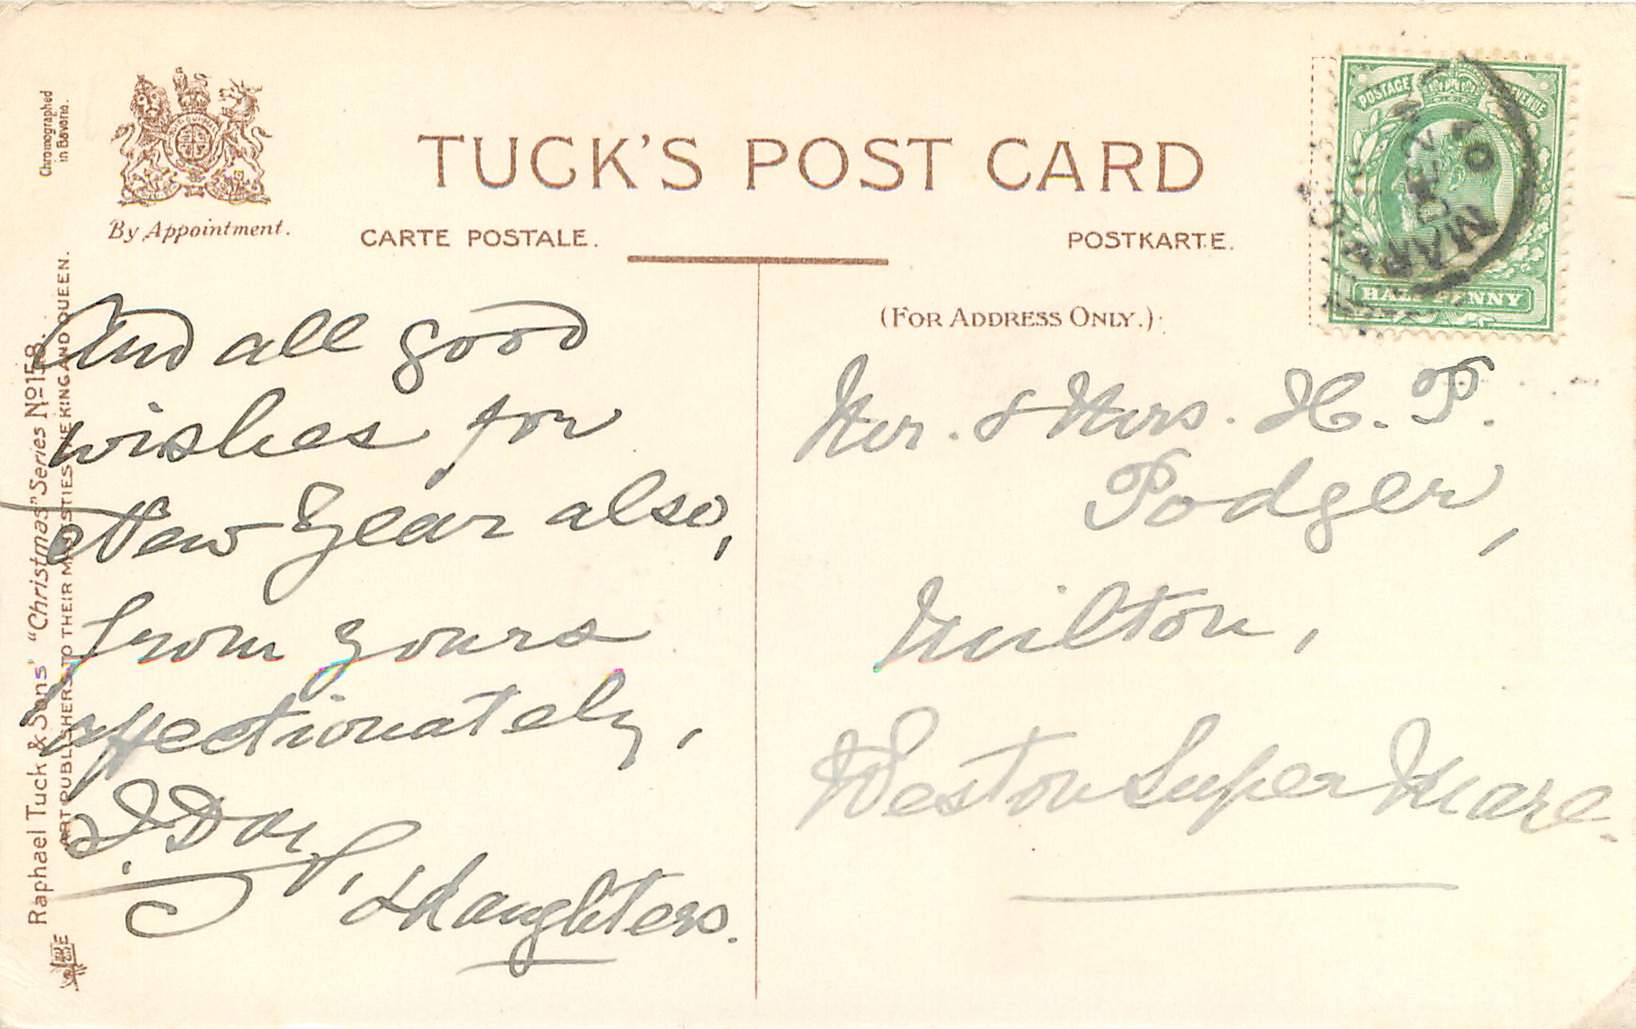 Chromographed
in Bavaria.
By Appointment.
TUCK'S POST CARD
CARTE POSTALE.
POSTKARTE.
(FOR ADDRESS ONLY.)
POSTAGE REVENUE
HALFPENNY
Raphael Tuck & Sons' "Christmas" Series No 158.
ART PUBLISHERS TO THEIR MAJESTIES THE KING AND QUEEN.
And all good
wishes for
New Year also,
from yours
affectionately,
J. Day,
& Daughters.
Mr. & Mrs. H. P.
Podger,
Milton,
Weston Super Mare.